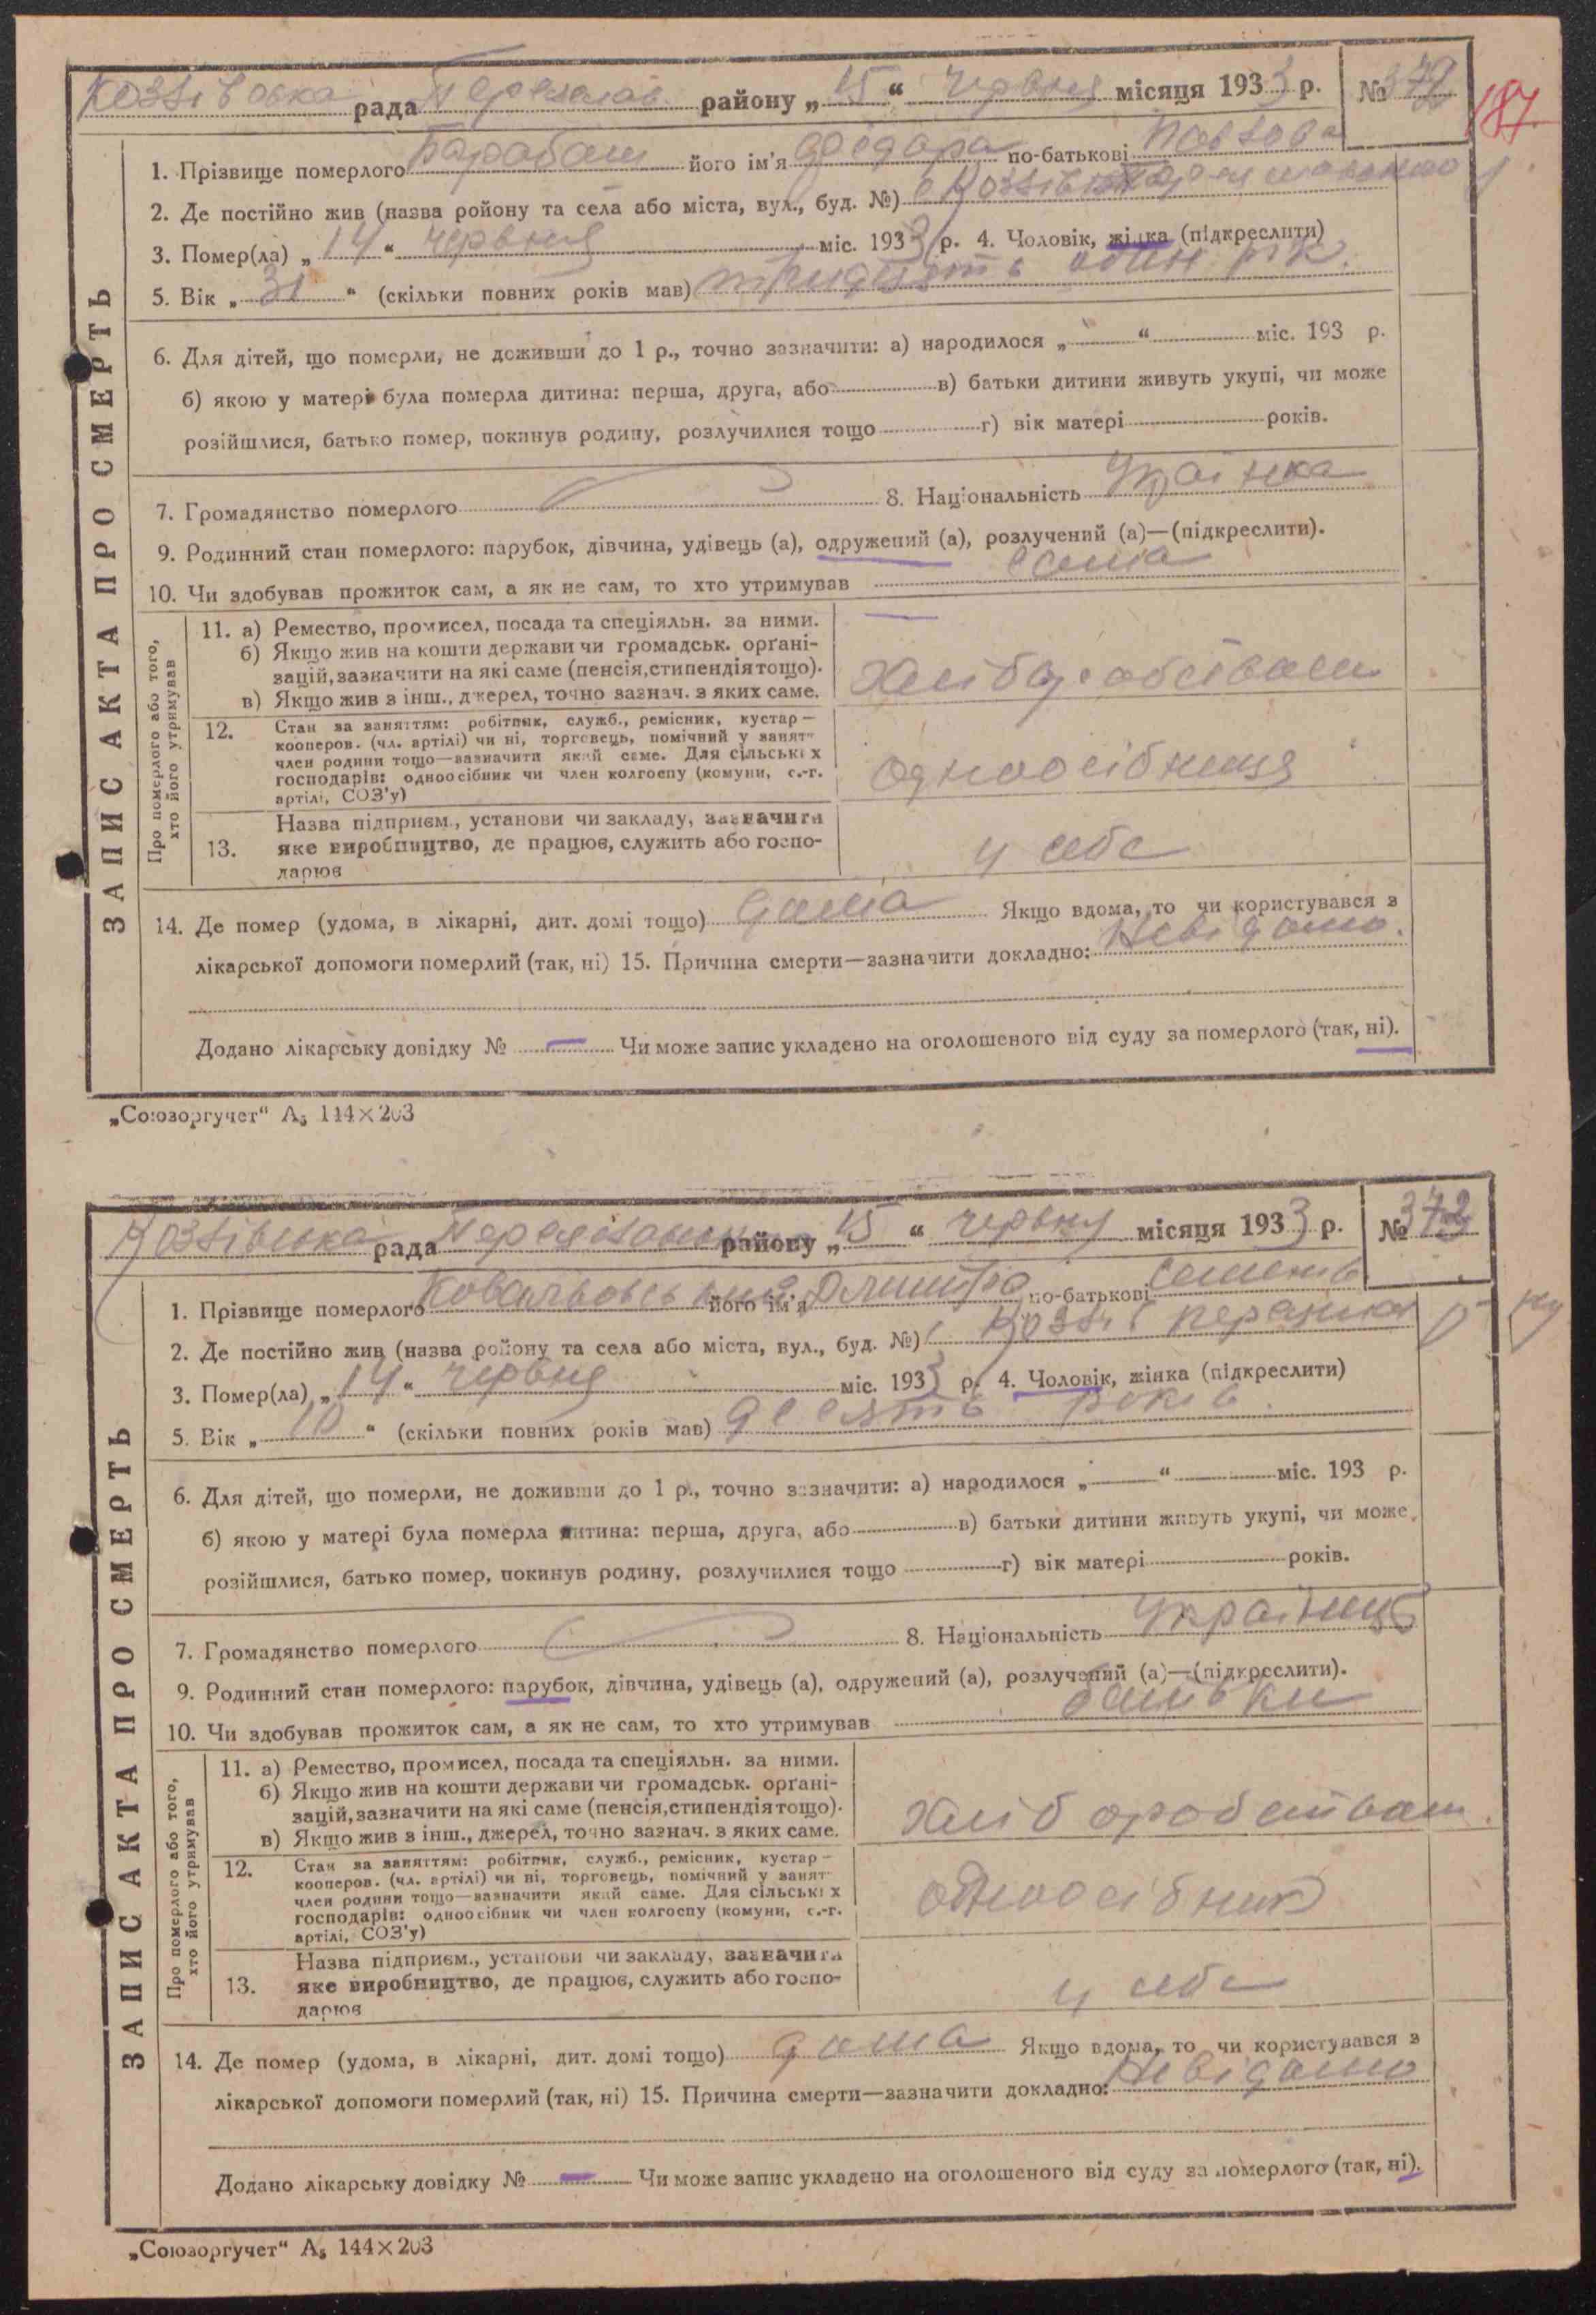 Козлівська рада Переяслав. району „15“ червня місяця 1933 р. №372
187
1. Прізвище померлого Барабаш його ім'я по-батькові Павлова
2. Де постійно жив (назва ройону та села або міста, вул., буд. №) с Козлів
3. Помер(ла) „14“ червня міс. 1933 р. 4. Чоловік, жінка (підкреслити)
5. Вік „31“ (скільки повних років мав) тридцять один рік.
6. Для дітей, що померли, не доживши до 1 р., точно зазначити: а) народилося „ “ міс. 193 р.
б) якою у матері була померла дитина: перша, друга, або в) батьки дитини живуть укупі, чи може
розійшлися, батько помер, покинув родину, розлучилися тощо г) вік матері років.
7. Громадянство померлого 8. Національність Українка
9. Родинний стан померлого: парубок, дівчина, удівець (а), одружений (а), розлучений (а)—(підкреслити).
10. Чи здобував прожиток сам, а як не сам, то хто утримував сама
ЗАПИС АКТА ПРО СМЕРТЬ
Про померлого або того,
хто його утримував
11. а) Ремество, промисел, посада та спеціяльн. за ними.
б) Якщо жив на кошти держави чи громадськ. орґані-
зацій, зазначити на які саме (пенсія, стипендія тощо).
в) Якщо жив з інш., джерел, точно зазнач. з яких саме.
хліборобством
12. Стан за заняттям: робітник, служб., ремісник, кустар—
кооперов. (чл. артілі) чи ні, торговець, помічний у занят
член родини тощо—зазначити який саме. Для сільських
господарів: одноосібник чи член колгоспу (комуни, с.-г.
артілі, СОЗ'у)
одноосібниця
13. Назва підприєм., установи чи закладу, зазначити
яке виробництво, де працює, служить або госпо-
дарює
у себе
14. Де помер (удома, в лікарні, дит. домі тощо) дома Якщо вдома, то чи користувався з
лікарської допомоги померлий (так, ні) 15. Причина смерти—зазначити докладно: Невідомо.
Додано лікарську довідку № — Чи може запис укладено на оголошеного від суду за померлого (так, ні).
„Союзоргучет“ А5 144×203
Козлівська рада району „15“ червня місяця 1933 р. №373
1. Прізвище померлого Ковальовський його ім'я Дмитро по-батькові Семенів
2. Де постійно жив (назва ройону та села або міста, вул., буд. №) с Козлів
3. Помер(ла) „14“ червня міс. 1933 р. 4. Чоловік, жінка (підкреслити)
5. Вік „10“ (скільки повних років мав) десять років.
6. Для дітей, що померли, не доживши до 1 р., точно зазначити: а) народилося „ “ міс. 193 р.
б) якою у матері була померла дитина: перша, друга, або в) батьки дитини живуть укупі, чи може
розійшлися, батько помер, покинув родину, розлучилися тощо г) вік матері років.
7. Громадянство померлого 8. Національність Українець
9. Родинний стан померлого: парубок, дівчина, удівець (а), одружений (а), розлучений (а)—(підкреслити).
10. Чи здобував прожиток сам, а як не сам, то хто утримував батьки
ЗАПИС АКТА ПРО СМЕРТЬ
Про померлого або того,
хто його утримував
11. а) Ремество, промисел, посада та спеціяльн. за ними.
б) Якщо жив на кошти держави чи громадськ. орґані-
зацій, зазначити на які саме (пенсія, стипендія тощо).
в) Якщо жив з інш., джерел, точно зазнач. з яких саме.
хліборобством.
12. Стан за заняттям: робітник, служб., ремісник, кустар—
кооперов. (чл. артілі) чи ні, торговець, помічний у занят
член родини тощо—зазначити який саме. Для сільських
господарів: одноосібник чи член колгоспу (комуни, с.-г.
артілі, СОЗ'у)
одноосібник
13. Назва підприєм., установи чи закладу, зазначити
яке виробництво, де працює, служить або госпо-
дарює
у себе
14. Де помер (удома, в лікарні, дит. домі тощо) дома Якщо вдома, то чи користувався з
лікарської допомоги померлий (так, ні) 15. Причина смерти—зазначити докладно: Невідомо
Додано лікарську довідку № — Чи може запис укладено на оголошеного від суду за померлого (так, ні).
„Союзоргучет“ А5 144×203